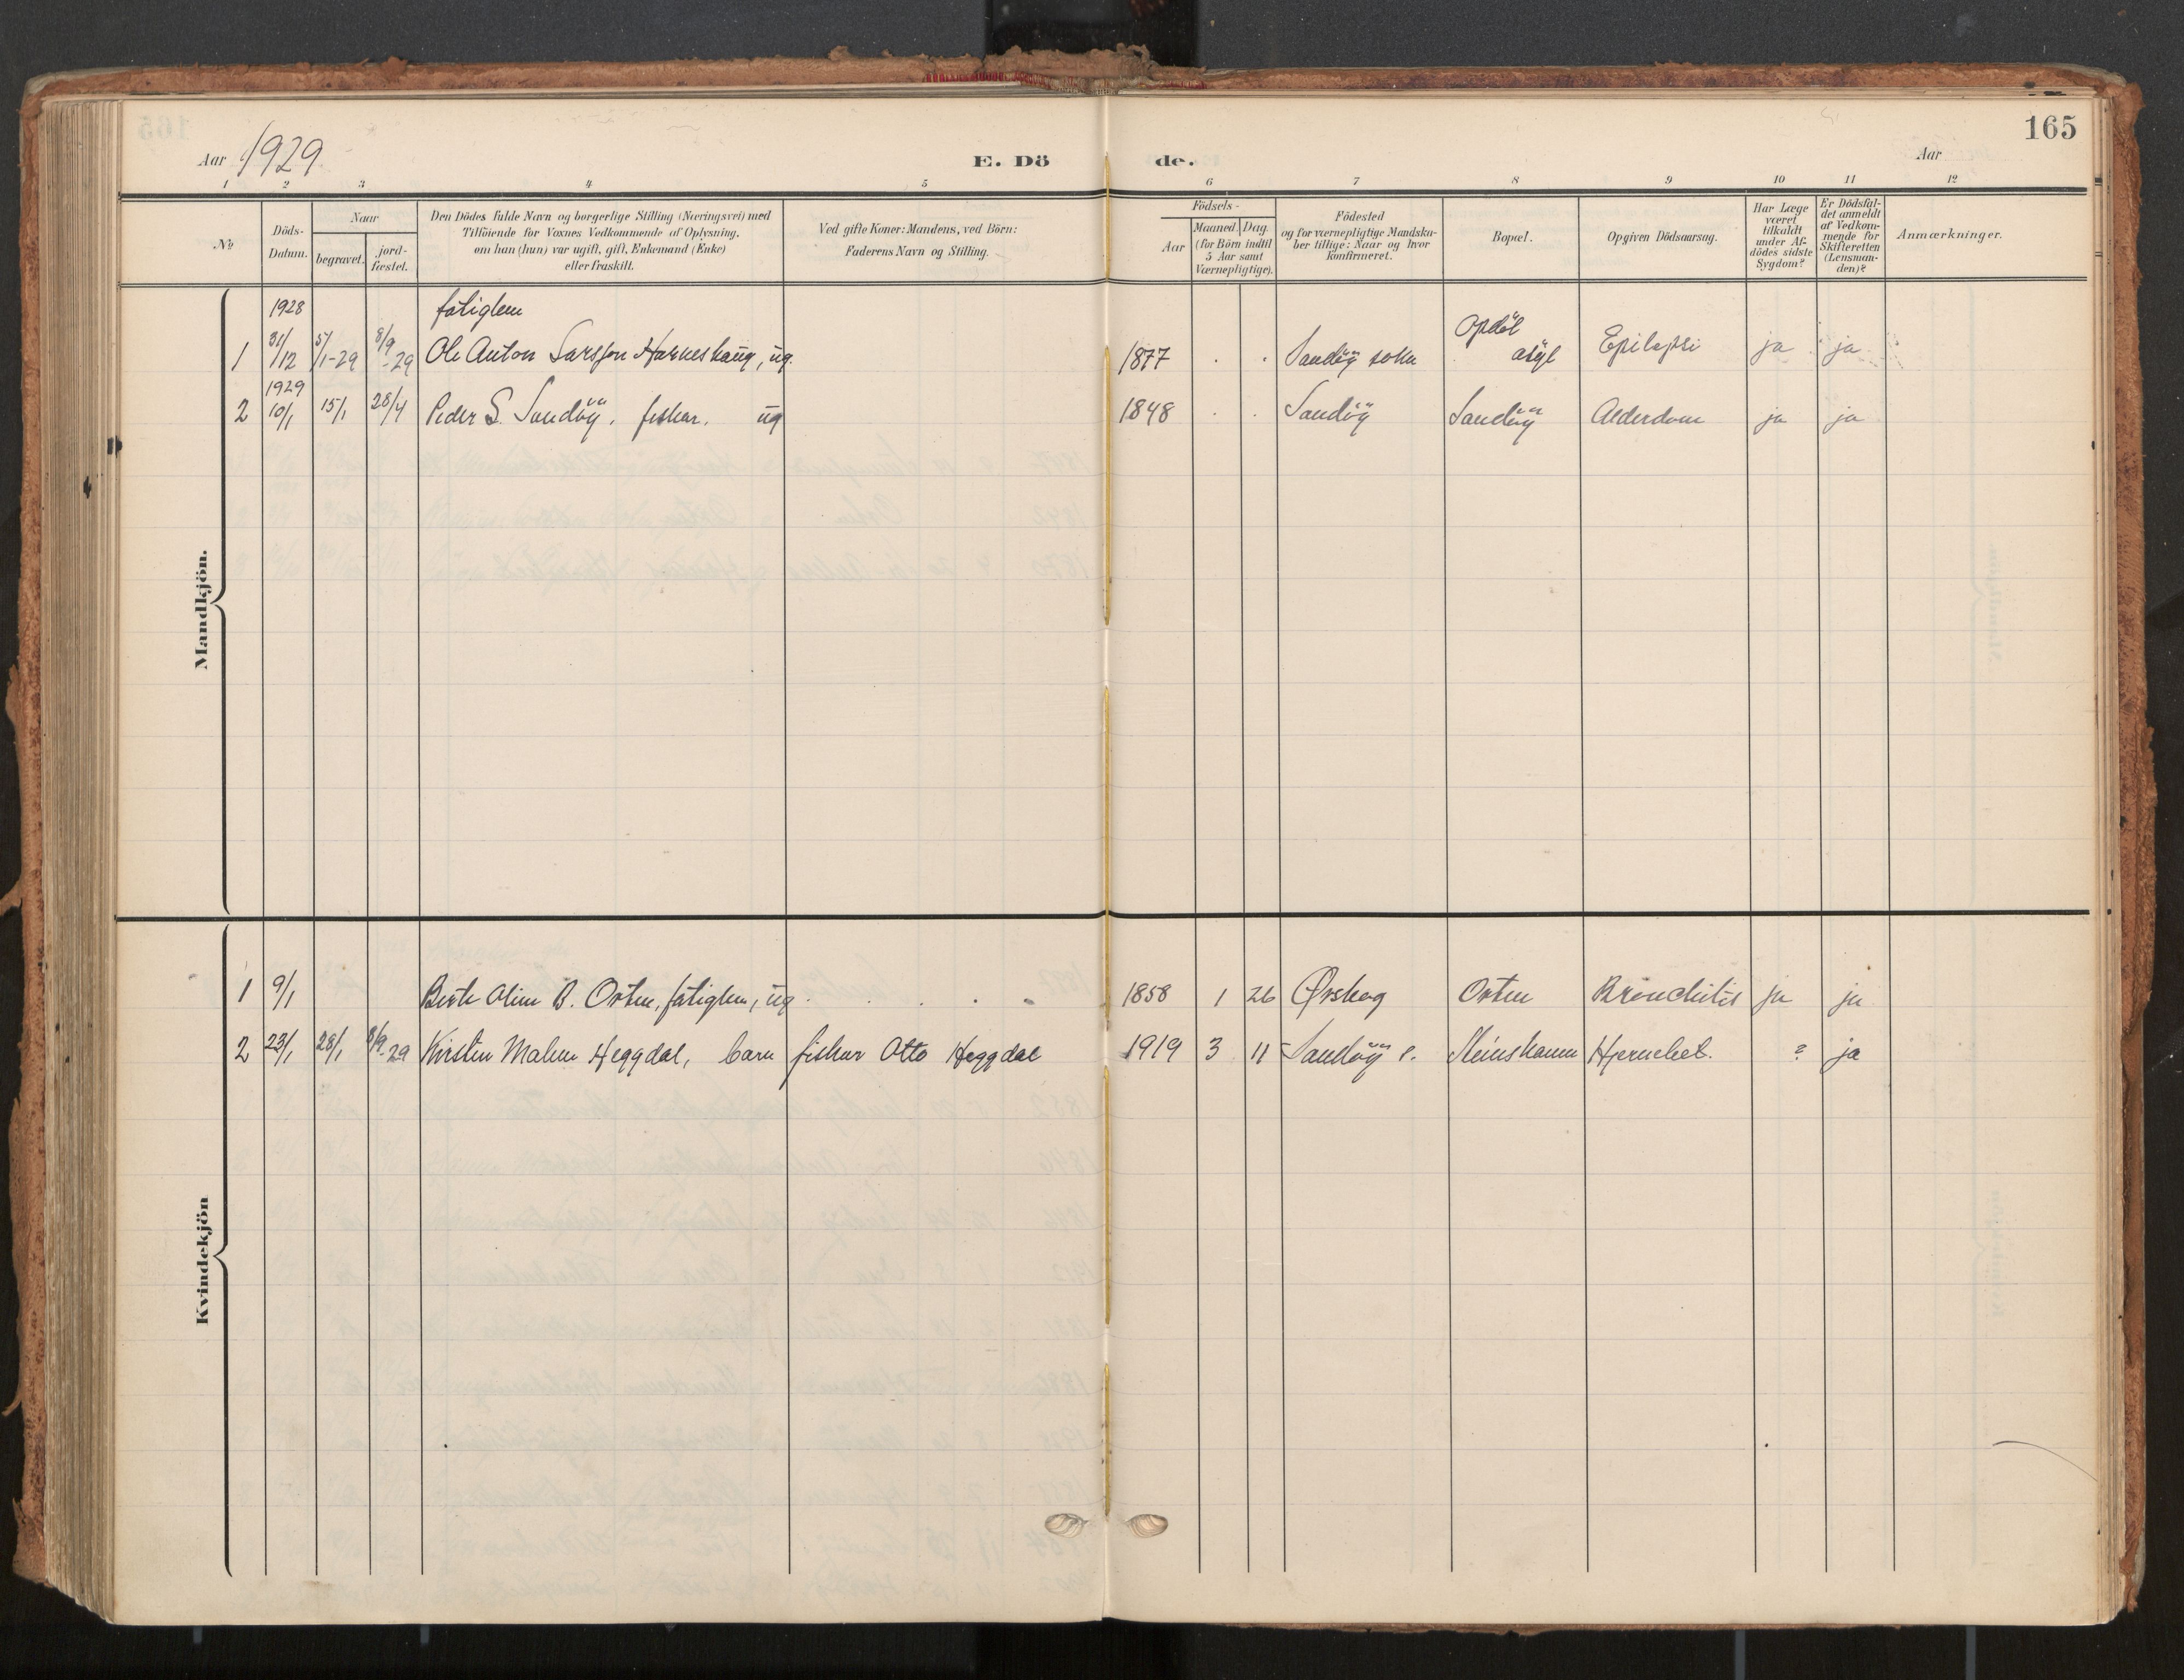 165
Aar 1929
E. Dö de.
Aar
1 2 3 4 5 6 7 8 9 10 11 12
No
Döds-Datum.
Naar
begravet.
jord-fæstet.
Den Dödes fulde Navn og borgerlige Stilling (Næringsvei) med
Tilföiende for Voxnes Vedkommende af Oplysning,
om han (hun) var ugift, gift, Enkemand (Enke)
eller fraskilt.
Ved gifte Koner: Mandens, ved Börn:
Faderens Navn og Stilling.
Födsels-
Aar
Maaned. Dag.
(for Börn indtil
5 Aar samt
Værnepligtige).
Födested
og for værnepligtige Mandska-
ber tillige: Naar og hvor
konfirmeret.
Bopæl.
Opgiven Dödsaarsag.
Har Læge
været
tilkaldt
under Af-
dödes sidste
Sygdom?
Er Dödsfal-
det anmeldt
af Vedkom-
mende for
Skifteretten
(Lensman-
den)?
Anmærkninger.
Mandkjön.
1928 fatiglem Opdöl
1 31/12 5/1-29 8/9-29 Ole Anton Larsson Harneshaug, ug. 1877 . . Sandöy sokn asyl Epilepsi ja ja
1929
2 10/1 15/1 28/4 Peder S. Sandöy, fiskar. ug 1848 . . Sandöy Sandöy Alderdom ja ja
Kvindekjön
1 9/1 Berte Oline B. Orten, fatiglem, ug. . . . . 1858 1 26 Ørskog Orten Bronchitis ja ja
2 23/1 28/1 8/9-29 Kirsten Malene Heggdal, barn fiskar Otto Heggdal 1919 3 11 Sandöy s. Steinshamn Hjernebet. ? ja